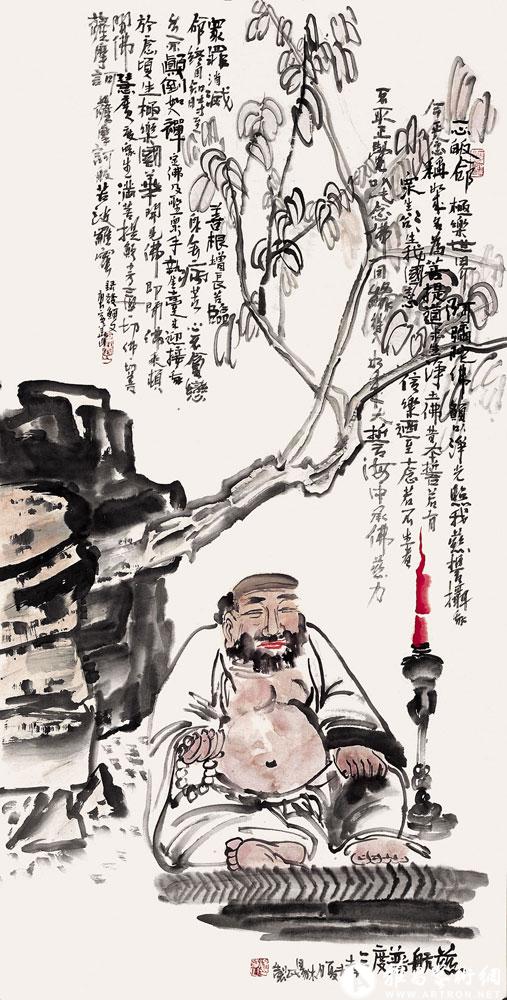 一心皈命極樂世界阿彌陀佛願以淨光照我慈誓攝我
今正念稱如來名為菩提道求生淨土佛昔本誓若有
眾生欲生我國志心信樂迺至十念若不生者
不取正覺以此念佛因緣得入如來大誓海中承佛慈力
眾罪消滅善根增長若臨
命終自知時至身無病苦心不貪戀
意不顛倒如入禪定佛及聖眾手執金臺來迎接我
於一念頃生極樂國華開見佛即聞佛乘頓
開佛慧廣度眾生滿菩提願十方三世一切佛一切菩
薩摩訶薩摩訶般若波羅蜜
慈航普度
雅昌藝術網
WWW.ARTRON.NET